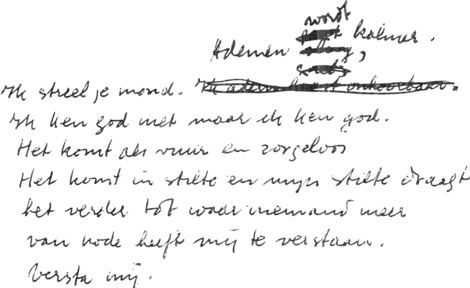 wordt
Ademen kalmer.
Ik streel je mond.
Ik ken god niet maar ik ken god.
Het komt als vuur en zorgeloos
Het komt in stilte en mijn stilte draagt
het verder tot waar niemand meer
van node heeft mij te verstaan.
Versta mij.